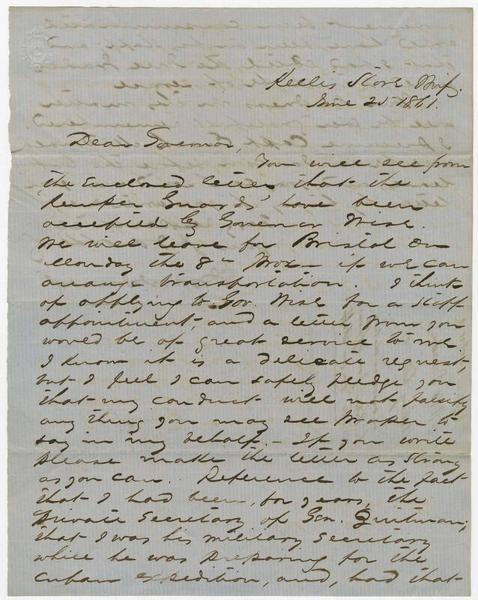 Kellis Store Miss.
June 20 1861.
Dear Governor,
You will see from
the enclosed letter that the
Kemper Guards' have been
accepted by Governor Wise.
We will leave for Bristol on
Monday the 8th Prox - if we can
arrange transportation. I think
of applying to Gov. Wise for a staff
appointment, and a letter from you
would be of great service to me.
I know it is a delicate request,
but I feel I can safely pledge you
that my conduct will not falsify
any thing you may see proper to
say in my behalf. - If you write
please make the letter as strong
as you can. Reference to the fact
that I had been, for years, the
private secretary of Gen. Quitman;
that I was his military secretary
while he was preparing for the
Cuban expedition, and, had that